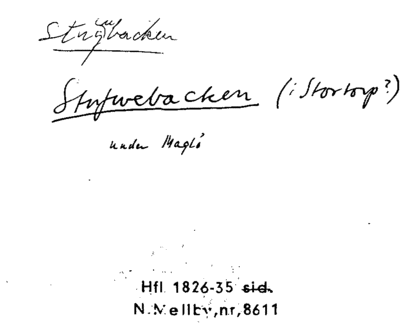 Stufwebacken (i Stortorp?)
under Maglö
Hfl 1826-35 sid.
N.Mellby,nr,8611